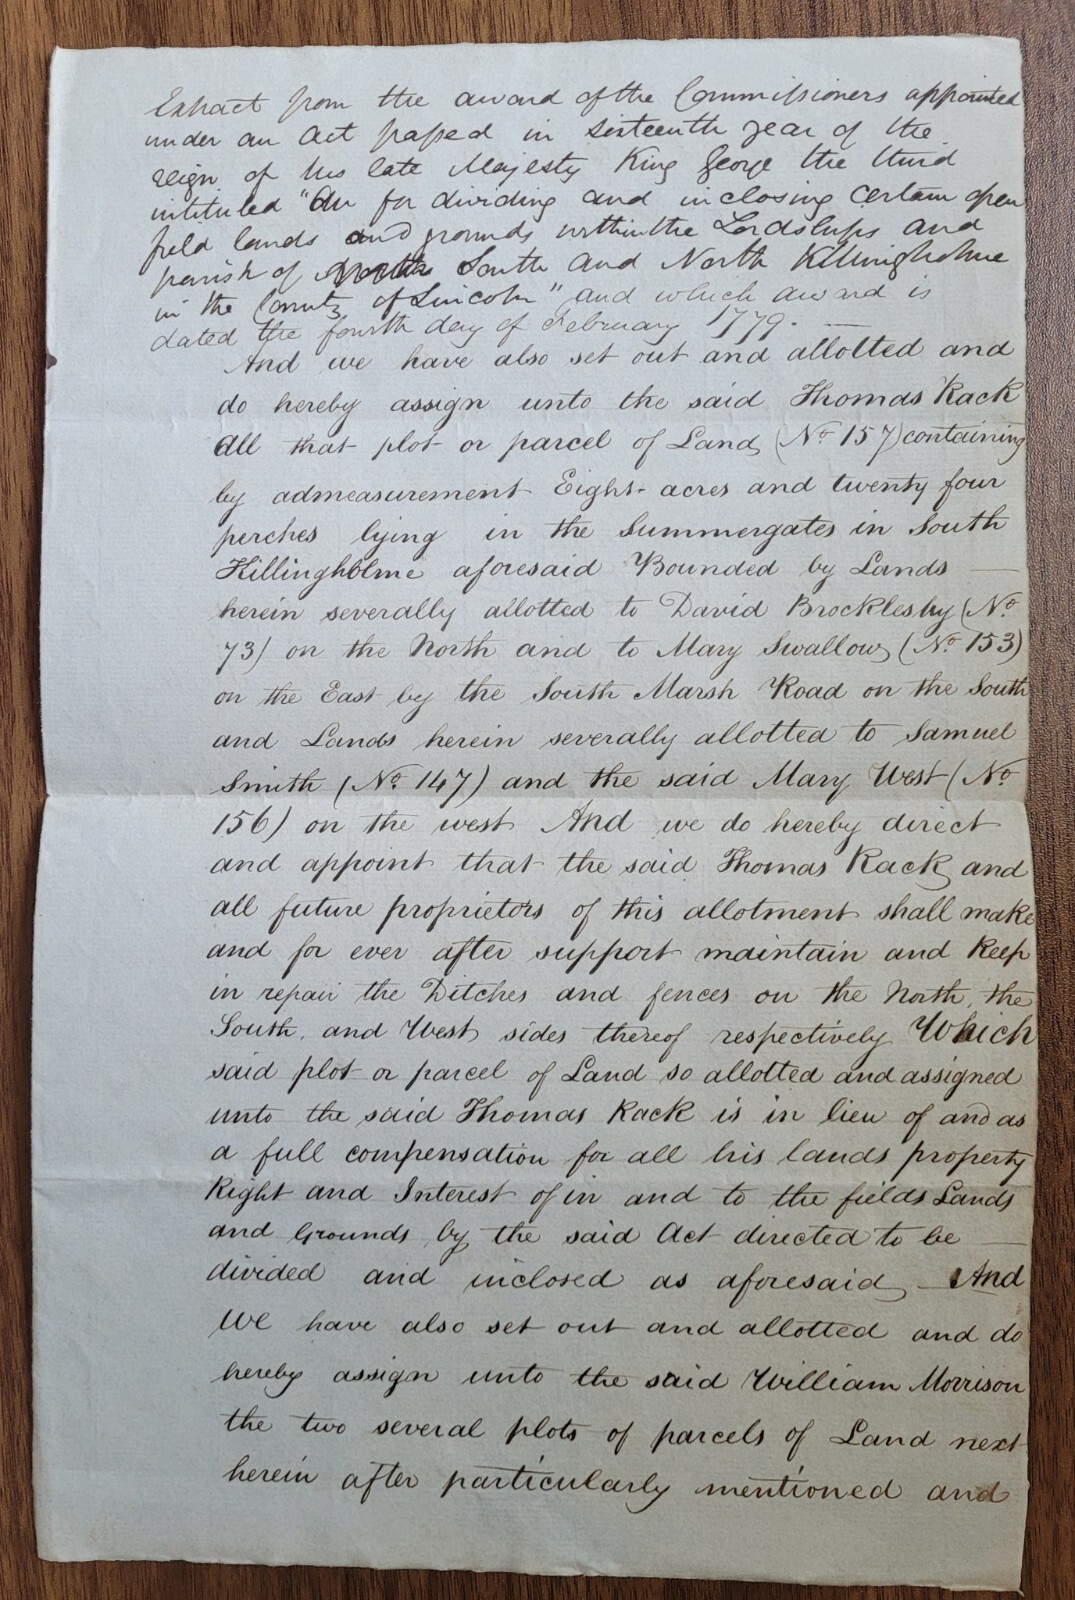 Extract from the award of the Commissioners appointed
under an Act passed in Sixteenth year of the
reign of his late Majesty King George the third
intituled "An for dividing and inclosing Certain open
field lands and grounds within the Lordships and
parish of South and North Killingholme
in the County of Lincoln" and which award is
dated the fourth day of February 1779. —
And we have also set out and allotted and
do hereby assign unto the said Thomas Rack
All that plot or parcel of Land (No 157) containing
by admeasurement Eight acres and twenty four
perches lying in the Summergates in South
Killingholme aforesaid Bounded by Lands —
herein severally allotted to David Brocklesby (No
73) on the North and to Mary Swallow (No 153)
on the East by the South Marsh Road on the South
and Lands herein severally allotted to Samuel
Smith (No 147) and the said Mary West (No
156) on the west And we do hereby direct
and appoint that the said Thomas Rack and
all future proprietors of this allotment shall make
and for ever after support maintain and keep
in repair the Ditches and fences on the North, the
South, and West sides thereof respectively Which
said plot or parcel of Land so allotted and assigned
unto the said Thomas Rack is in lieu of and as
a full compensation for all his lands property
Right and Interest of in and to the fields Lands
and Grounds by the said Act directed to be —
divided and inclosed as aforesaid — And
We have also set out and allotted and do
hereby assign unto the said William Morrison
the two several plots of parcels of Land next
herein after particularly mentioned and